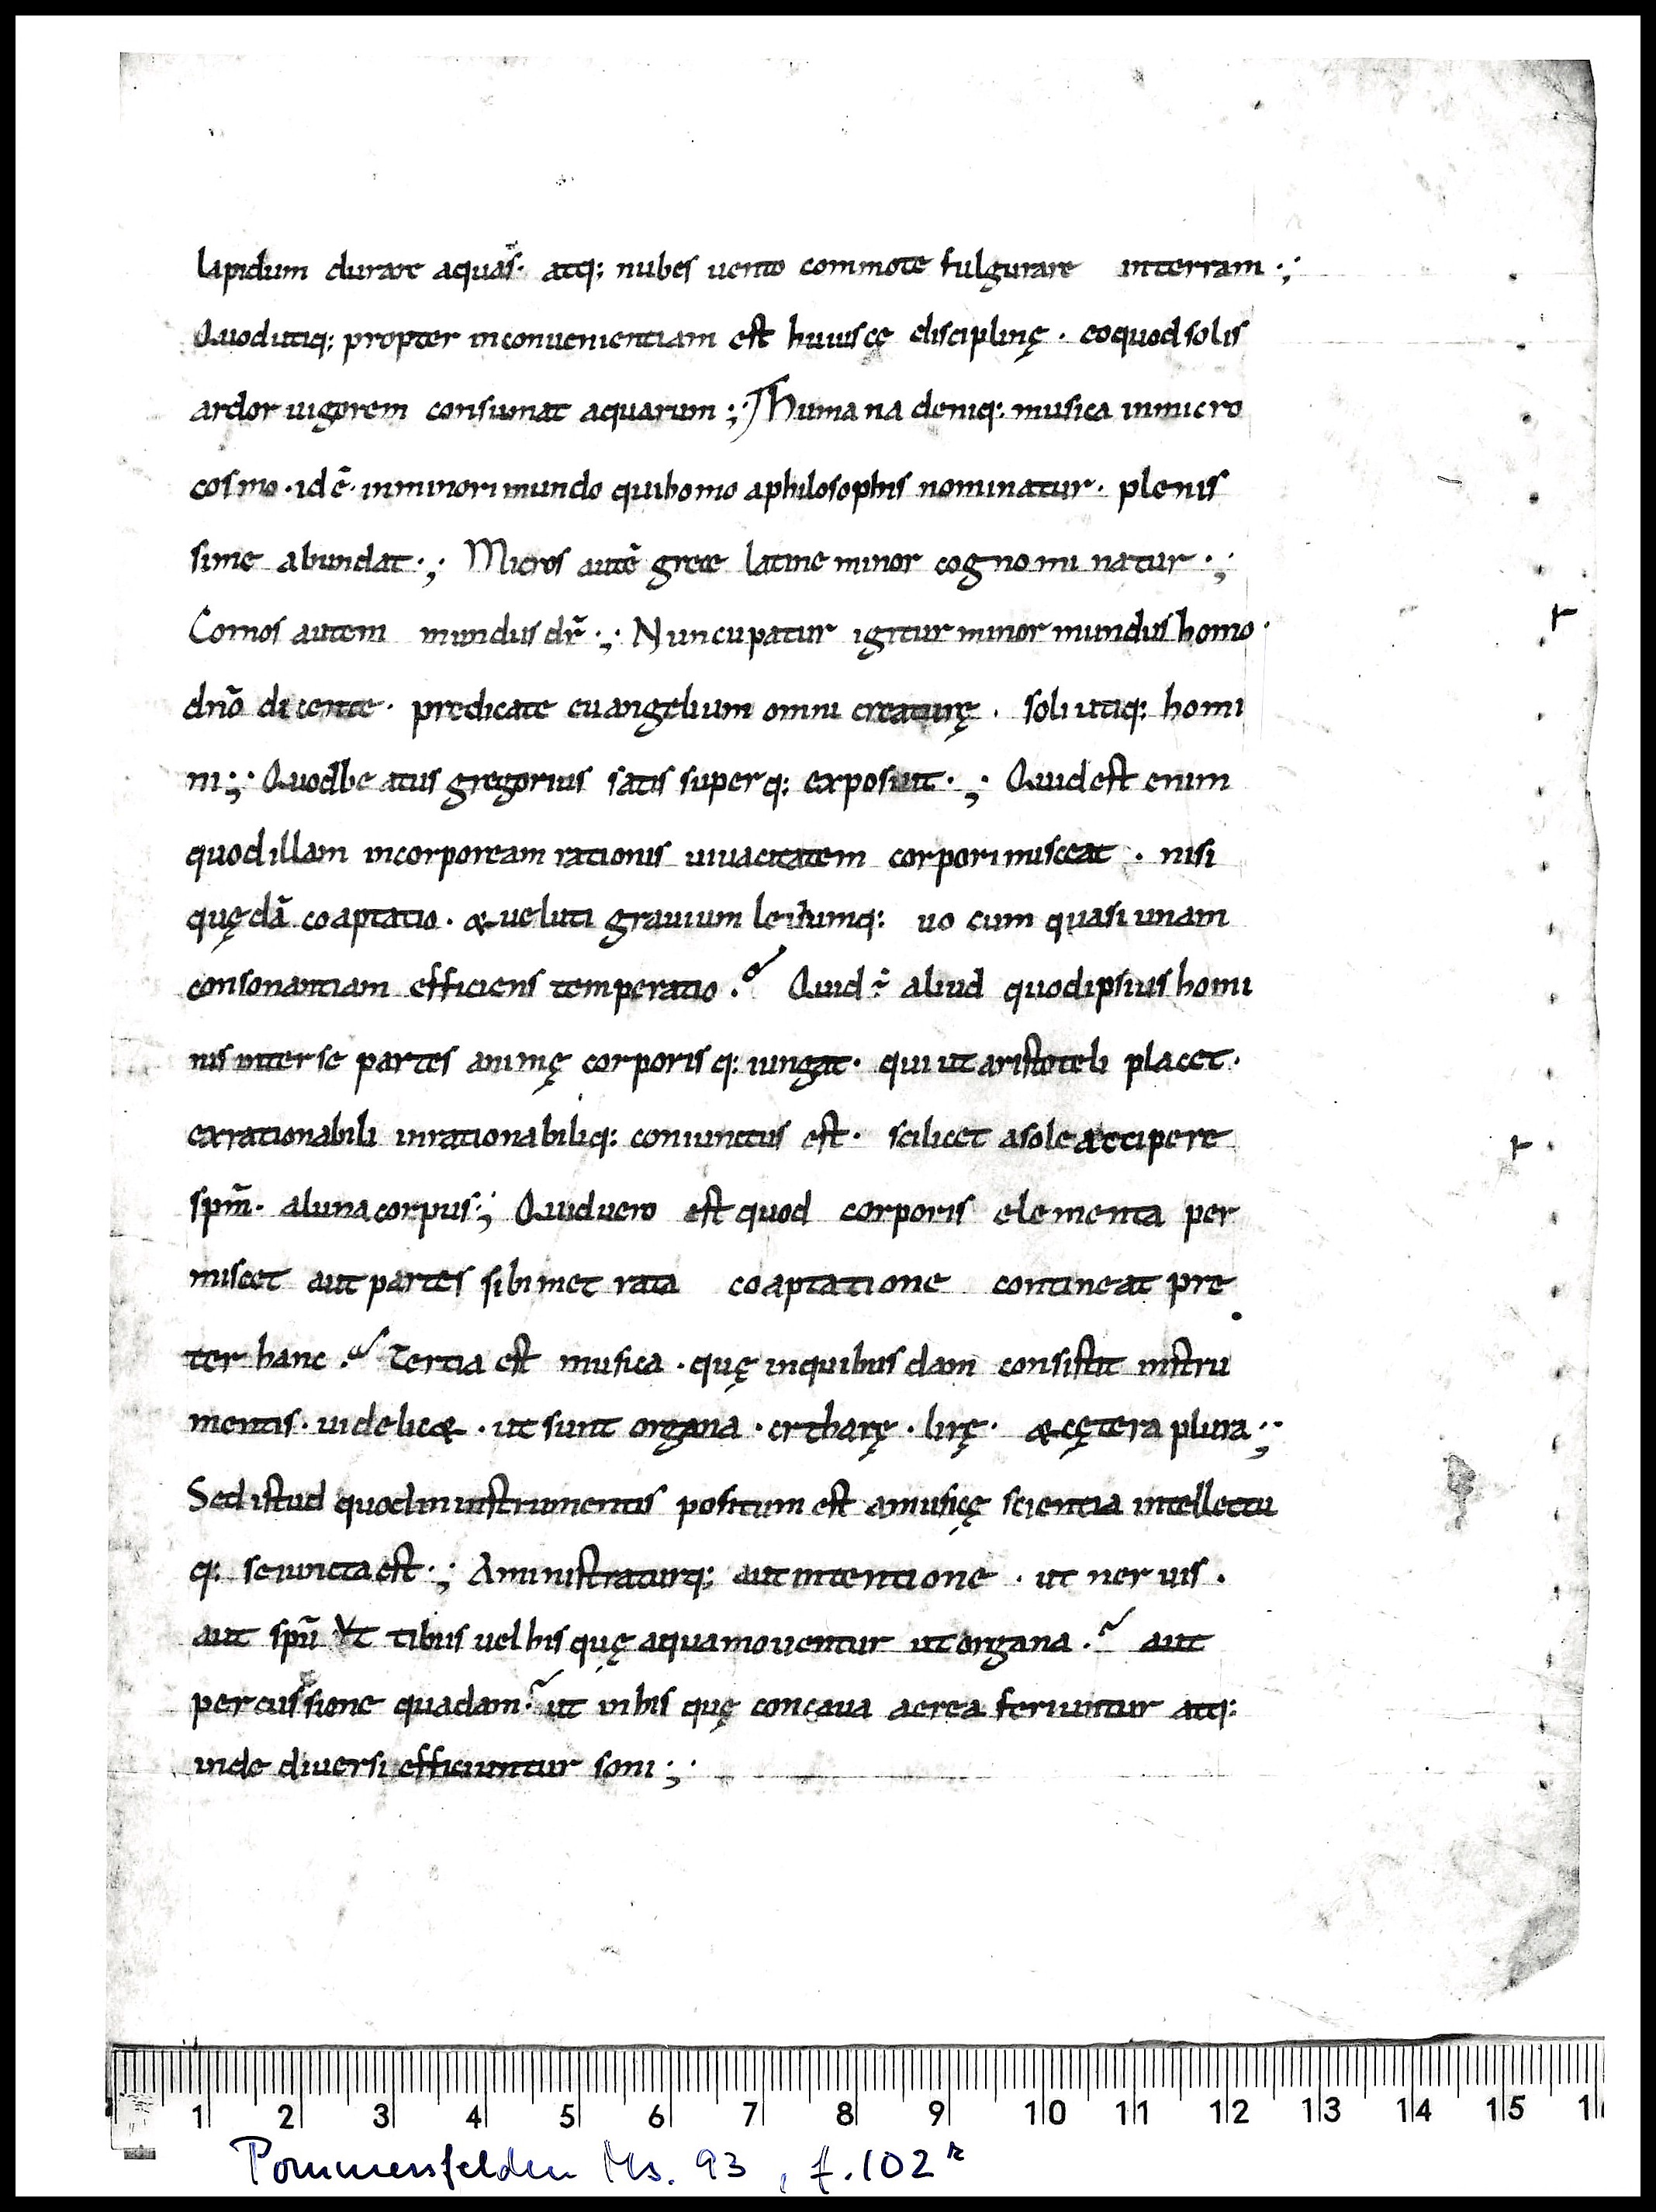 lapidum durare aquas· atq; nubes uento commote fulgurare interram·;
Quodutiq; propter inconuenientiam est huiuscę disciplinę · eoquod solis
ardor uigorem consumat aquarum ;· Humana deniq; musica inmicro
cosmo · id ē · inminori mundo qui homo aphilosophis nominatur · plenis
sime abundat ·;· Micros autē grece latine minor cognominatur ·;
Comos autem mundus dr̄ ·;· Nuncupatur igitur minor mundus homo·
dnō dicente · predicate euangelium omni creaturę · soli utiq; homi
ni ;· Quodbeatus gregorius satis superq; exposuit ·;· Quid est enim
quod illam incorpoream rationis uiuacitatem corpori misceat · nisi
quędā coaptatio · & ueluti grauium leuiumq; uocum quasi unam
consonantiam efficiens temperatio · Quid ÷ aliud quod ipsius homi
nis inter se partes animę corporisq; iungat · qui ut aristoteli placet ·
ex rationabili inrationabiliq; coniunctus est · scilicet asole accipere
spm̄ · aluna corpus ·; Quid uero est quod corporis elementa per
miscet aut partes sibimet rata coaptatione contineat pre
ter hanc · Tertia est musica · quę inquibusdam consistit instru
mentis · uidelic& · ut sunt organa · citharę · lirę · & cętera plura ;·
Sed istud quod in instrumentis positum est amusicę scientia intellectu
q; seiuncta est ·;· Aministraturq; aut intentione · ut neruis ·
aut spū Vt tibus uel his quę aqua mouentur ut organa · aut
percussione quadam · ut in his quę concaua aerea feriuntur atq;
inde diuersi efficiuntur soni ;·
1 2 3 4 5 6 7 8 9 10 11 12 13 14 15 1
Pommersfelden Ms. 93, f. 102ʳ